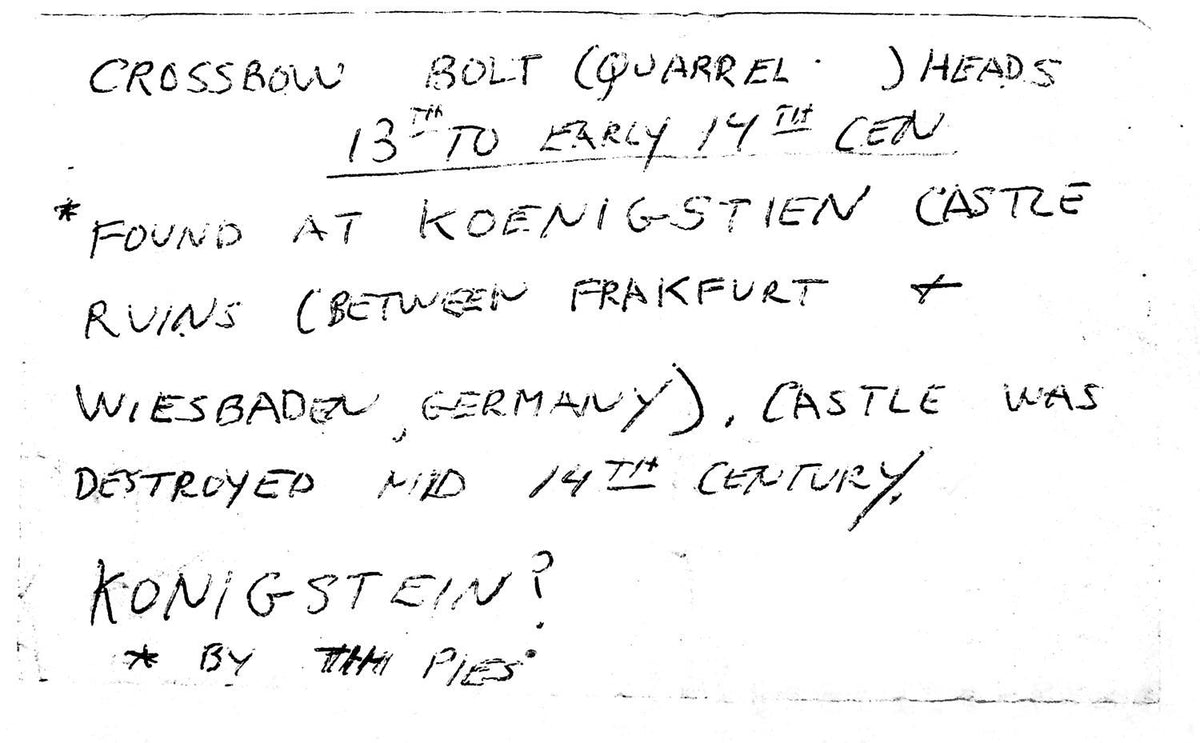 CROSSBOW BOLT (QUARREL ) HEADS
13TH TO EARLY 14TH CEN
*FOUND AT KOENIGSTIEN CASTLE
RUINS (BETWEEN FRAKFURT +
WIESBADEN, GERMANY). CASTLE WAS
DESTROYED MID 14TH CENTURY.
KONIGSTEIN?
* BY PIES